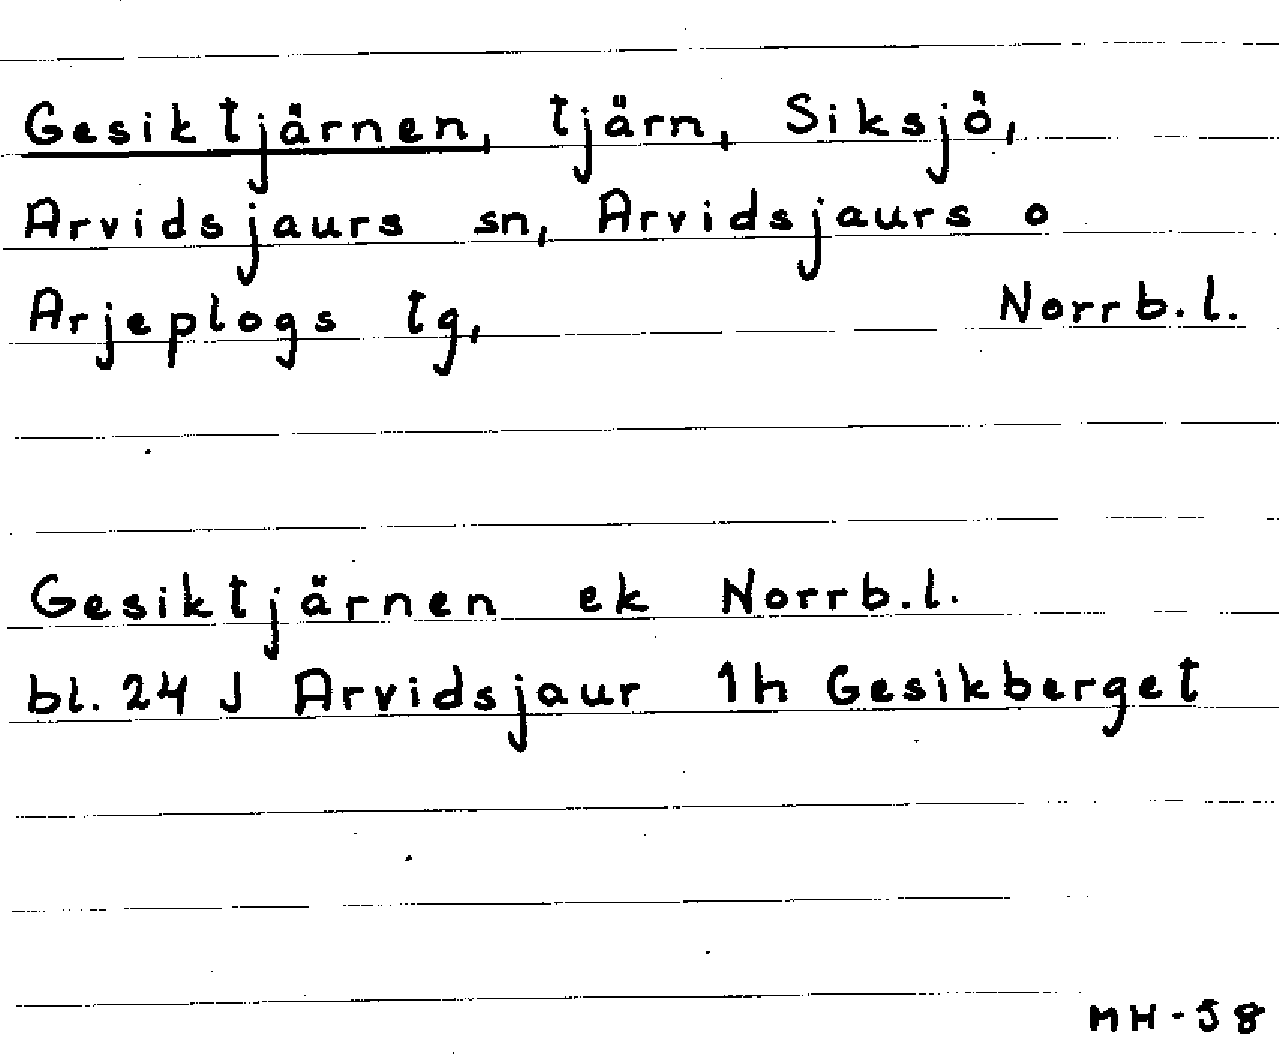 Gesiktjärnen, tjärn, Siksjö,
Arvidsjaurs sn, Arvidsjaurs o
Arjeplogs tg, Norrb.l.
Gesiktjärnen ek Norrb.l.
bl. 24 J Arvidsjaur 1h Gesikberget
MH-58